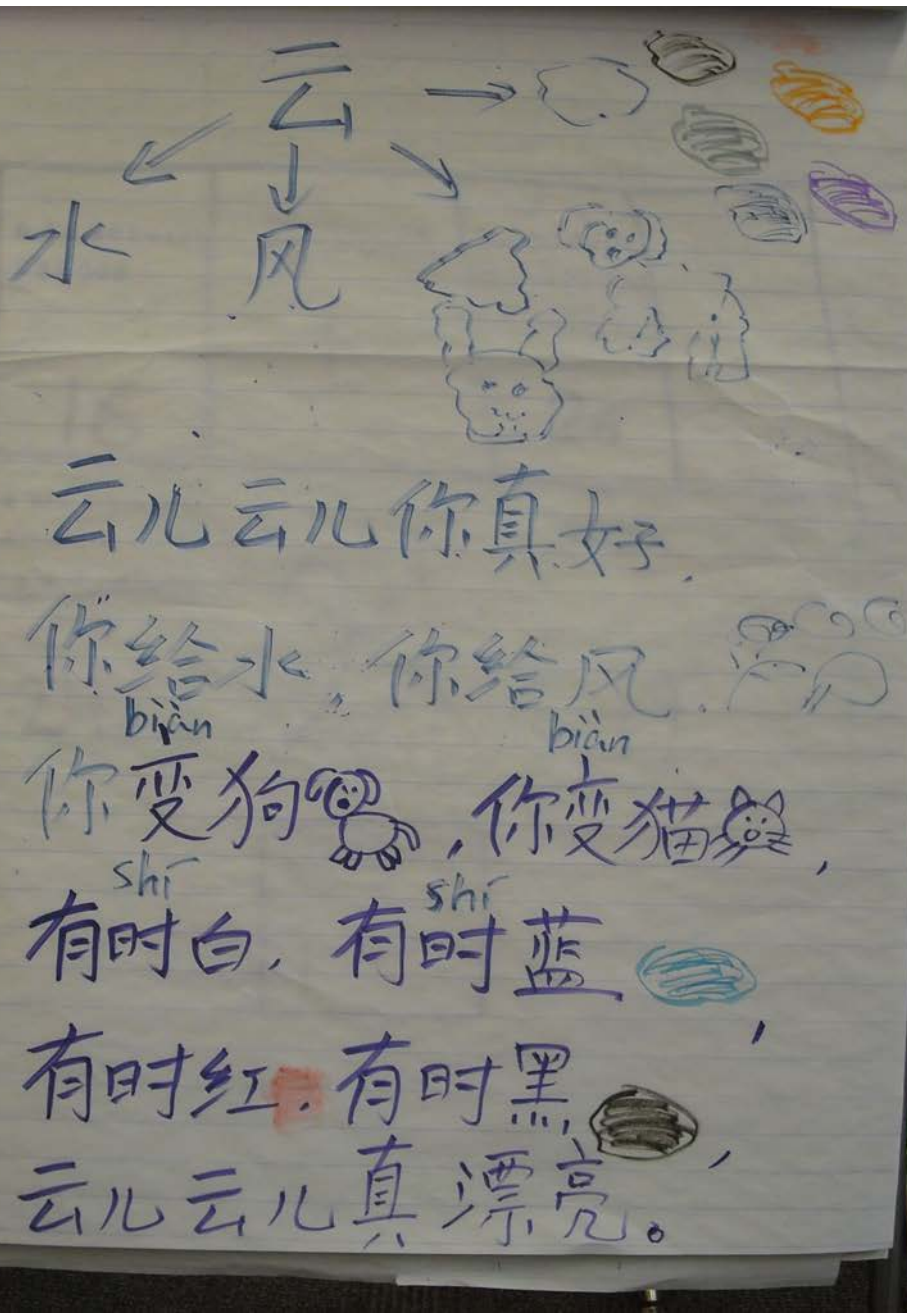 云
水 风
云儿云儿你真好.
你给水, 你给风.
biàn biàn
你变狗, 你变猫,
shí shí
有时白, 有时蓝,
有时红, 有时黑,
云儿云儿真漂亮。